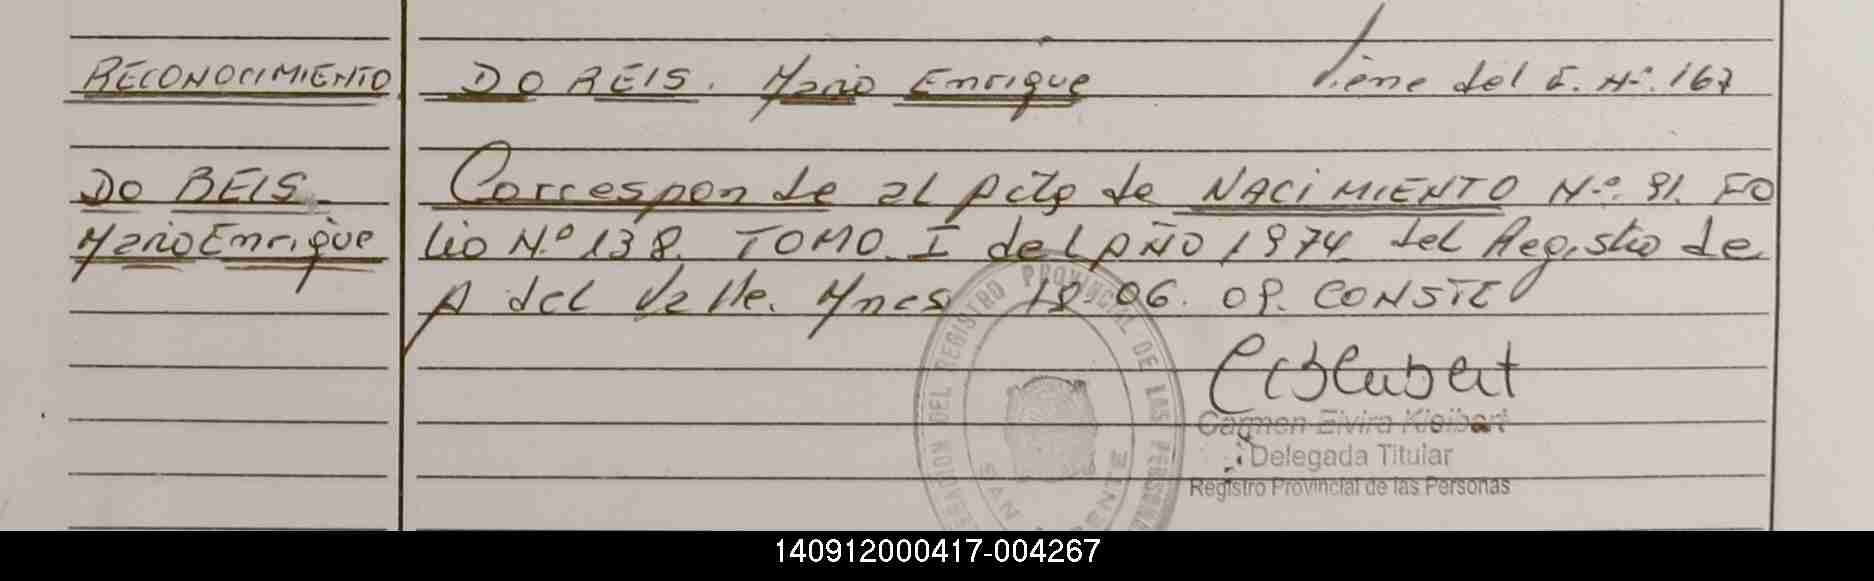 RECONOCIMIENTO
DO REIS. Mario Enrique Viene del F. Nº. 167
DO REIS
Mario Enrique
Corresponde al Acto de NACIMIENTO Nº. 91. FO
lio Nº 138. TOMO. I del AÑO 1974 del Registro de
A del Valle. Mnes 18. 06. 09. CONSTE
Carmen Elvira Kleibert
Delegada Titular
Registro Provincial de las Personas
DELEGACION DEL REGISTRO PROVINCIAL DE LAS PERSONAS
SAN VICENTE
140912000417-004267